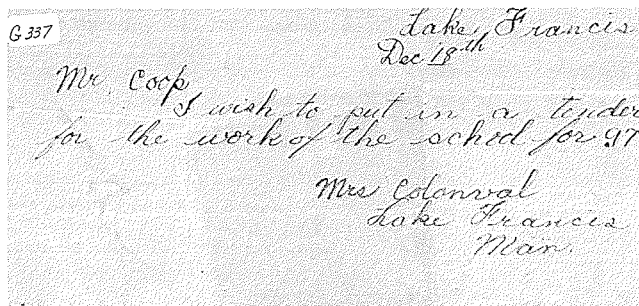 G 337
Lake Francis
Dec 18th
Mr. Coop
I wish to put in a tender
for the work of the school for 97
Mrs Colonval
Lake Francis
Man.